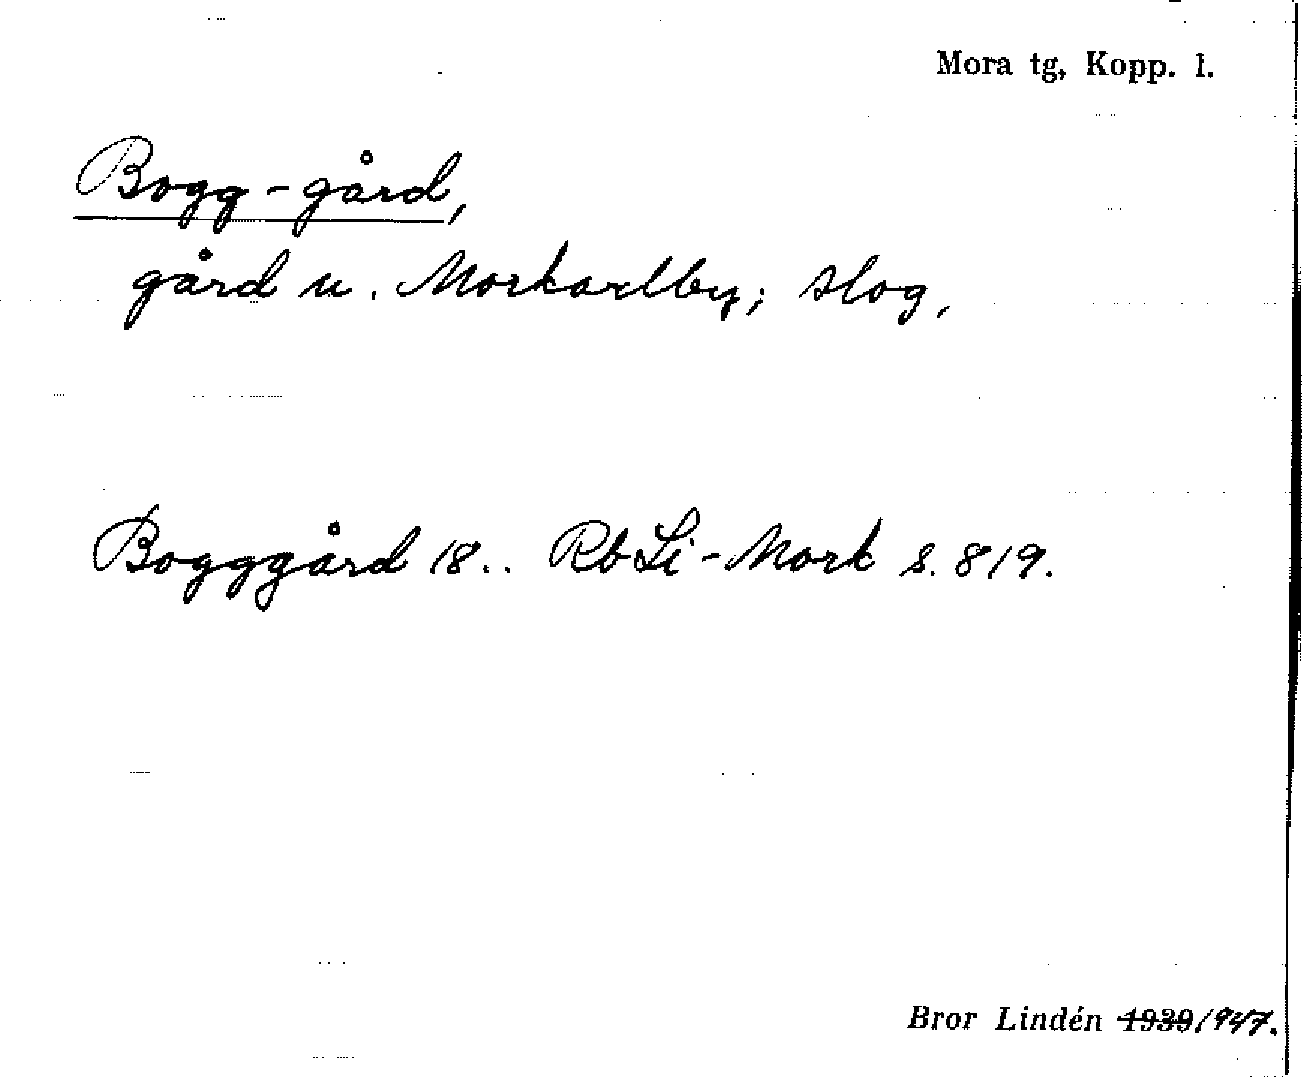 Mora tg, Kopp. l.
Bogg-gård,
gård u. Morkarlby; slog.
Bogggård 18.. Rb Li-Mork s. 819.
Bror Lindén 1939 1947.